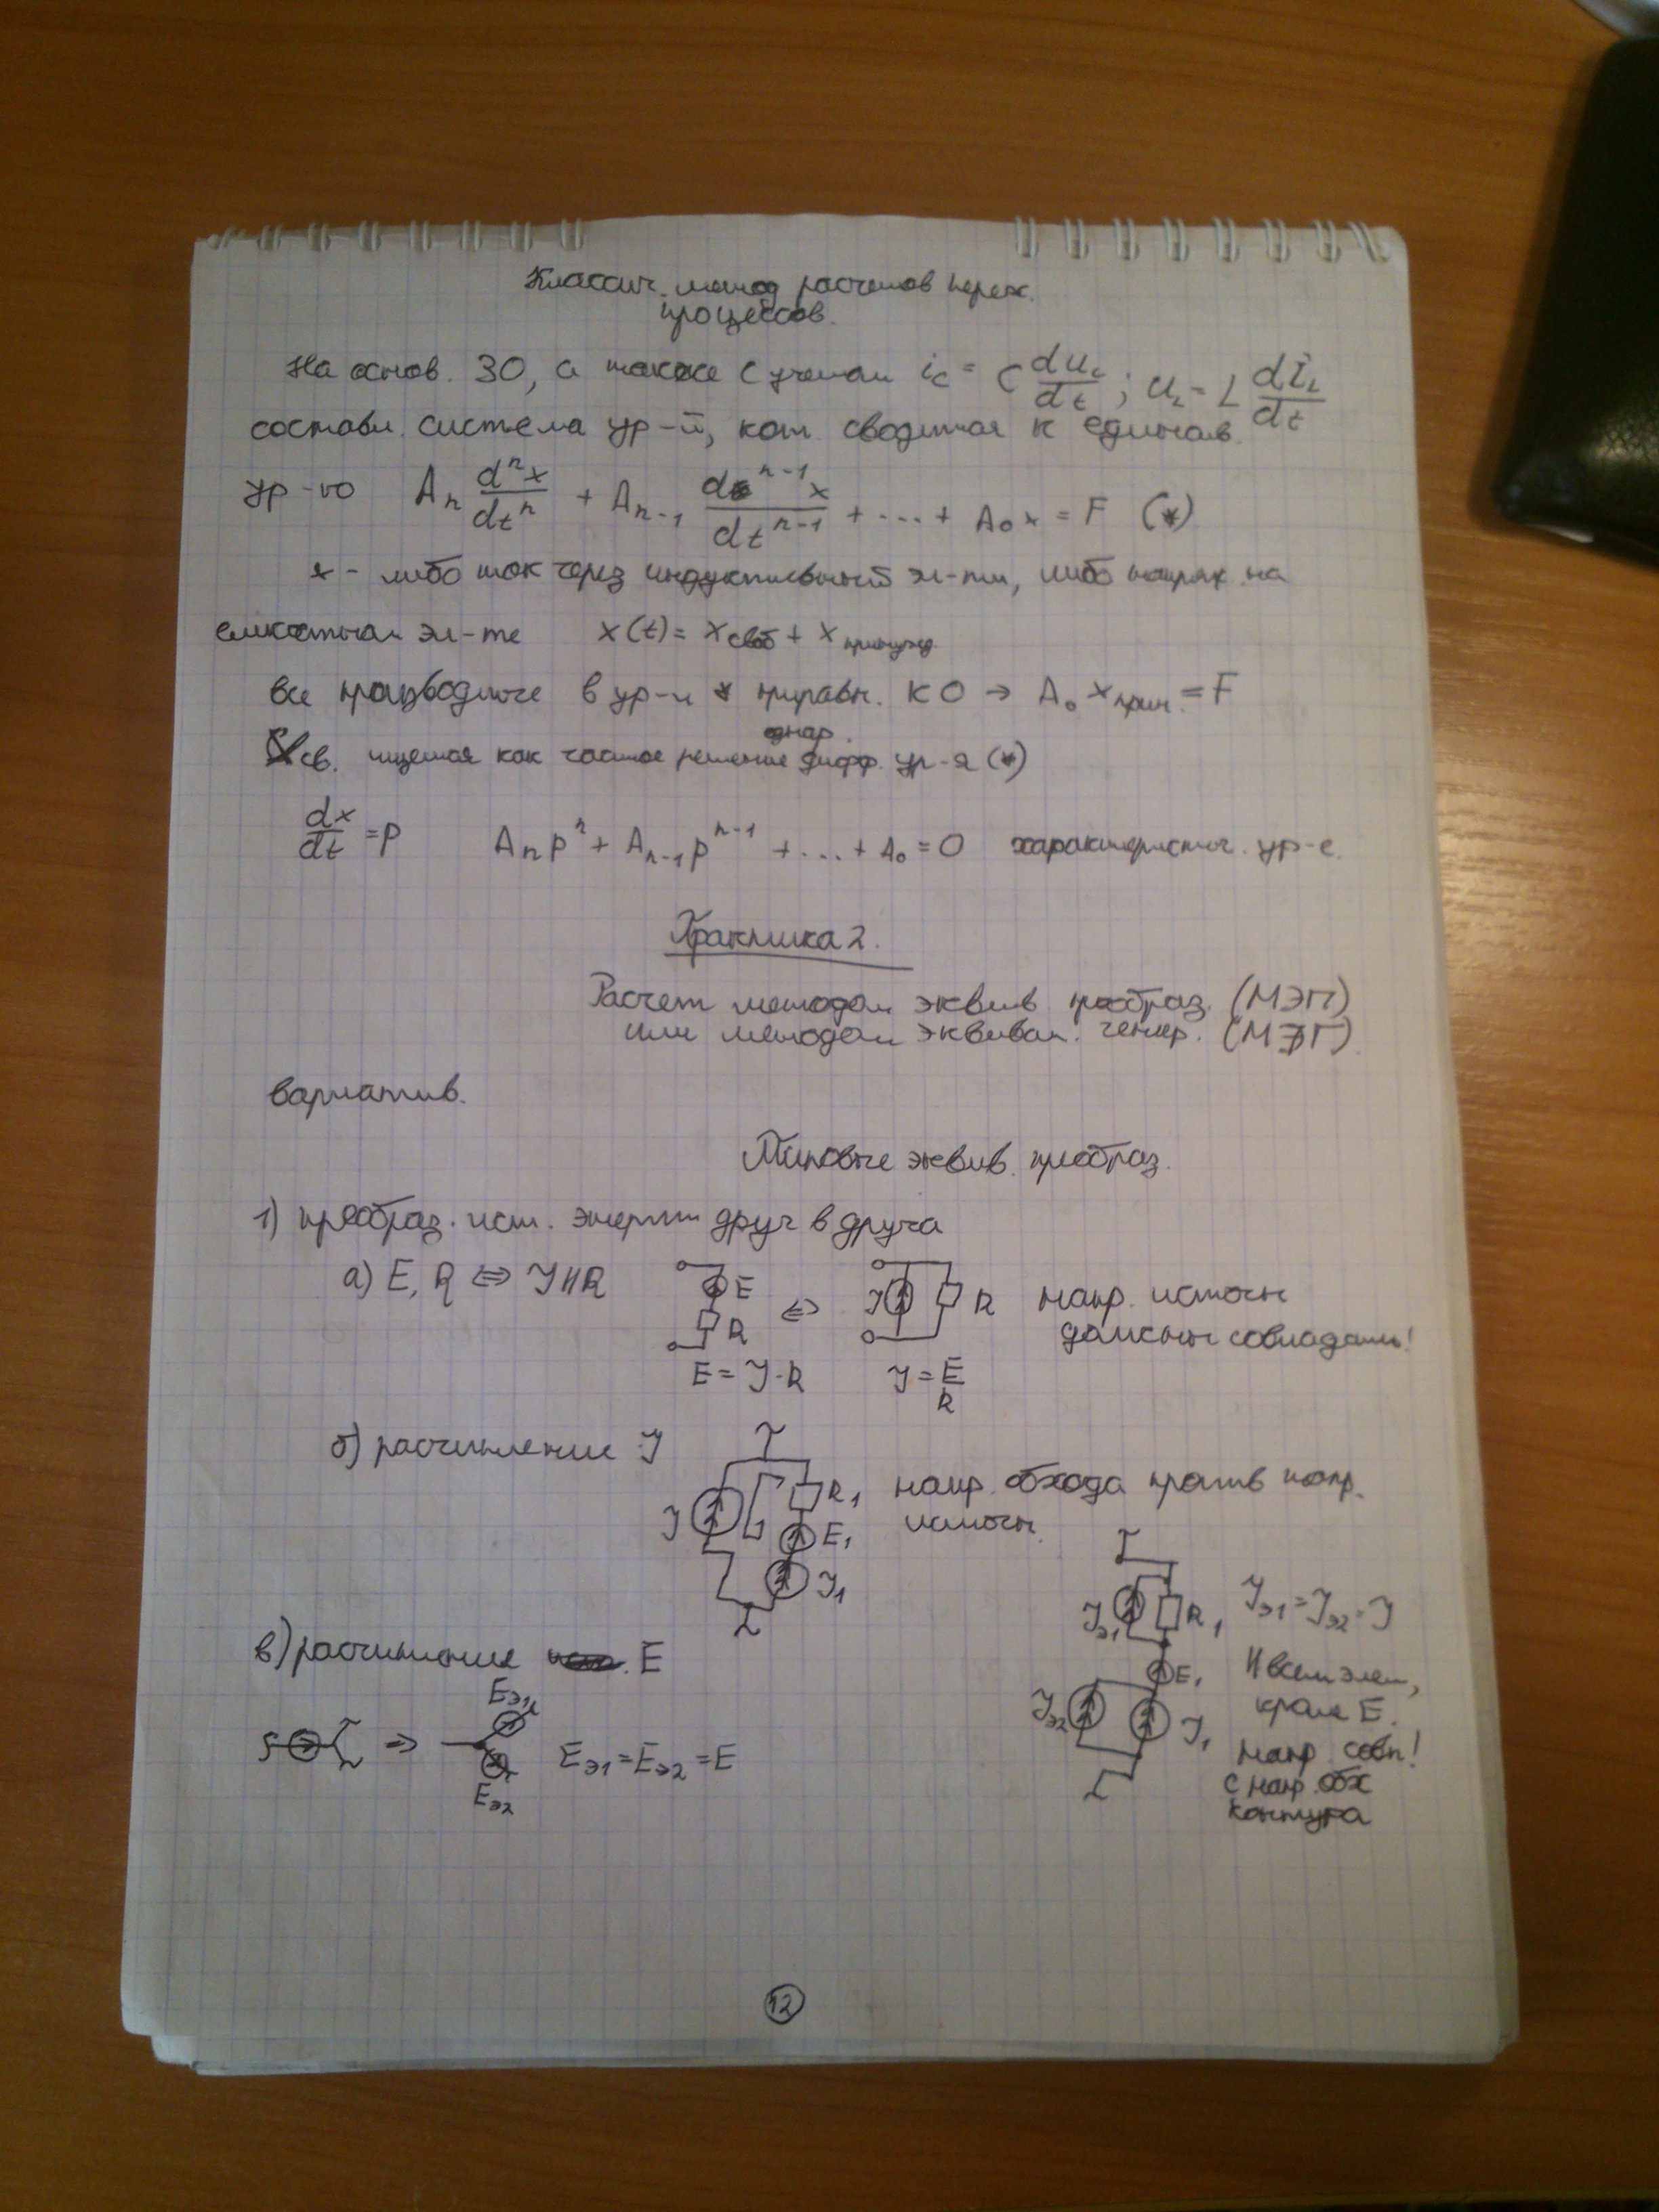 Классич. метод расчетов перех.
процессов.
На основ. ЗО, а также с учетом i_c = C du_c/dt ; u_L = L di_L/dt
составл. система ур-й, кот. сводится к единств.
ур-ю A_n d^n x/dt^n + A_{n-1} d^{n-1} x/dt^{n-1} + ... + A_0 x = F (*)
x - либо ток через индуктивный эл-ты, либо напряж. на
емкостном эл-те x(t) = x_своб + x_принужд.
все производные в ур-и * приравн. к 0 → A_0 x_прин. = F
однор.
X_св. ищется как частное решение дифф. ур-я (*)
dx/dt = p A_n p^n + A_{n-1} p^{n-1} + ... + A_0 = 0 характеристич. ур-е.
Практика 2.
Расчет методом эквив. преобраз. (МЭП)
или методом эквивал. генер. (МЭГ)
вариатив.
Типовые эквив. преобраз.
1) преобраз. ист. энергии друг в друга
а) E, R ⇔ J || R E R ⇔ J R напр. источн
должны совпадать!
E = J · R J = E/R
б) расчипление J
J R_1 E_1 J_1 напр. обхода против напр.
источн.
J_э1 R_1 J_э1 = J_э2 = J
в) расчипление E
E_1 || всем элем,
J_э2 J_1 кроме E.
E_э1
S ⇒ E_э1 = E_э2 = E
E_э2
напр. совп!
с напр. обх
контура
12